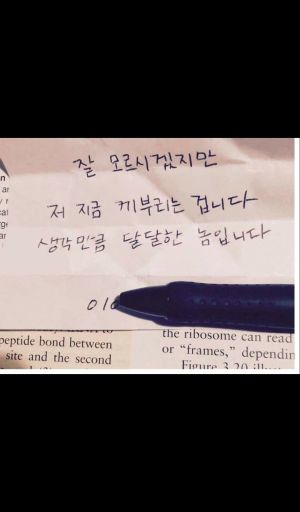 잘 모르시겠지만
저 지금 께부리는 겁니다
생각만큼 달달한 놈입니다
016
peptide bond between
site and the second
the ribosome can read
or "frames," dependin
Figure 3.20